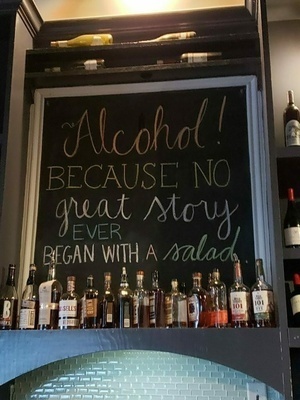 ~Alcohol!
BECAUSE NO
great story
EVER
BEGAN WITH A salad.
101
101